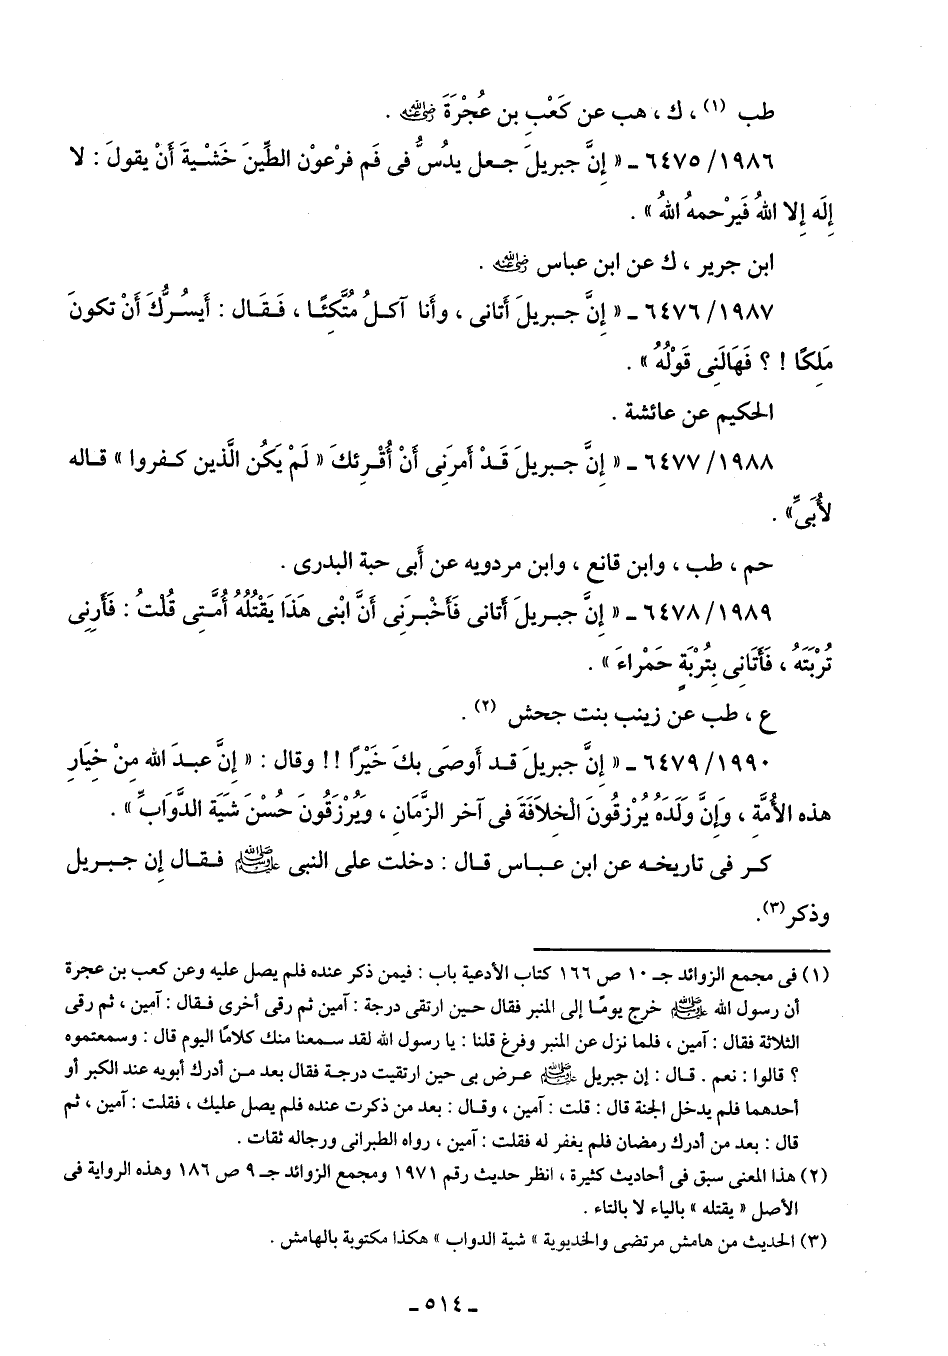 طب (١) ، ك ، هب عن كَعْبِ بن عُجْرَةَ رضي الله عنه .
١٩٨٦/ ٦٤٧٥ ـ « إِنَّ جبريلَ جعل يدُسُّ فى فَم فرْعوْن الطِّينَ خَشْيةَ أَنْ يقولَ : لا
إِلَه إِلا اللهُ فَيَرْحمهُ اللهُ » .
ابن جرير ، ك عن ابن عباس رضي الله عنه .
١٩٨٧/ ٦٤٧٦ ـ « إِنَّ جبريلَ أتانى ، وأنا آكلُ متَّكئًا ، فَقَال : أَيسُرُّكَ أَنْ تكونَ
مَلِكًا ! ؟ فَهَالَنِى قَوْلُهُ » .
الحكيم عن عائشة .
١٩٨٨/ ٦٤٧٧ ـ « إِنَّ جبريلَ قَدْ أمرَنِى أَنْ أُقْرِئكَ « لَمْ يَكُن الَّذين كفروا » قاله
لأُبَىٍّ» .
حم ، طب ، وابن قانع ، وابن مردويه عن أَبى حبة البدرى .
١٩٨٩/ ٦٤٧٨ ـ « إِنَّ جبريلَ أَتانى فَأَخْبرَنِى أَنَّ ابْنى هَذَا يَقْتُلُهُ أُمَّتِى قُلْتُ : فَأَرِنِى
تُرْبَتَهُ ، فَأَتَانِى بِتُرْبَةٍ حَمْراءَ » .
ع ، طب عن زينب بنت جحش (٢) .
١٩٩٠/ ٦٤٧٩ ـ « إِنَّ جبريلَ قد أوصَى بكَ خَيْرًا !! وقال : « إِنَّ عبدَ الله مِنْ خِيَارِ
هذه الأُمَّةِ ، وَإِنَّ وَلَدَهُ يُرْزقُونَ الْخلاَفَةَ فى آخر الزَّمَان ، وَيُرْزَقُونَ حُسْنَ شَيَةِ الدَّوَابِّ » .
كر فى تاريخه عن ابن عباس قال : دخلت على النبى ﷺ فقال إن جبريل
وذكر(٣).
(١) فى مجمع الزوائد جـ ١٠ ص ١٦٦ كتاب الأدعية باب : فيمن ذكر عنده فلم يصل عليه وعن كعب بن عجرة
أن رسول الله ﷺ خرج يومًا إلى المنبر فقال حين ارتقى درجة : آمين ثم رقى أخرى فقال : آمين ، ثم رقى
الثلاثة فقال : آمين ، فلما نزل عن المنبر وفرغ قلنا : يا رسول الله لقد سمعنا منك كلامًا اليوم قال : وسمعتموه
؟ قالوا : نعم . قال : إن جبريل ﷺ عرض بى حين ارتقيت درجة فقال بعد من أدرك أبويه عند الكبر أو
أحدهما فلم يدخل الجنة قال : قلت : آمين ، وقال : بعد من ذكرت عنده فلم يصل عليك ، فقلت : آمين ، ثم
قال : بعد من أدرك رمضان فلم يغفر له فقلت : آمين ، رواه الطبرانى ورجاله ثقات .
(٢) هذا المعنى سبق فى أحاديث كثيرة ، انظر حديث رقم ١٩٧١ ومجمع الزوائد جـ ٩ ص ١٨٦ وهذه الرواية فى
الأصل « يقتله » بالياء لا بالتاء .
(٣) الحديث من هامش مرتضى والخديوية » شية الدواب » هكذا مكتوبة بالهامش .
ـ ٥١٤ ـ